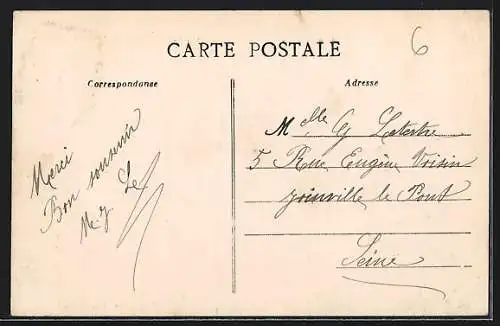 CARTE POSTALE
6
Correspondance
Merci
Bon souvenir
Adresse
Melle
5 Rue Eugène Voisin
Joinville le Pont
Seine